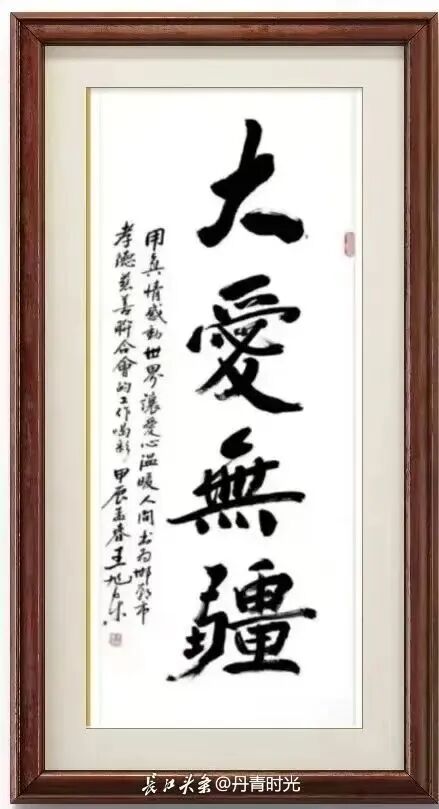 大愛無疆
用真情感動世界讓愛心温暖人間書為邯鄲市
孝德慈善聯合會的工作喝彩 甲辰孟春王旭
長江头条@丹青时光